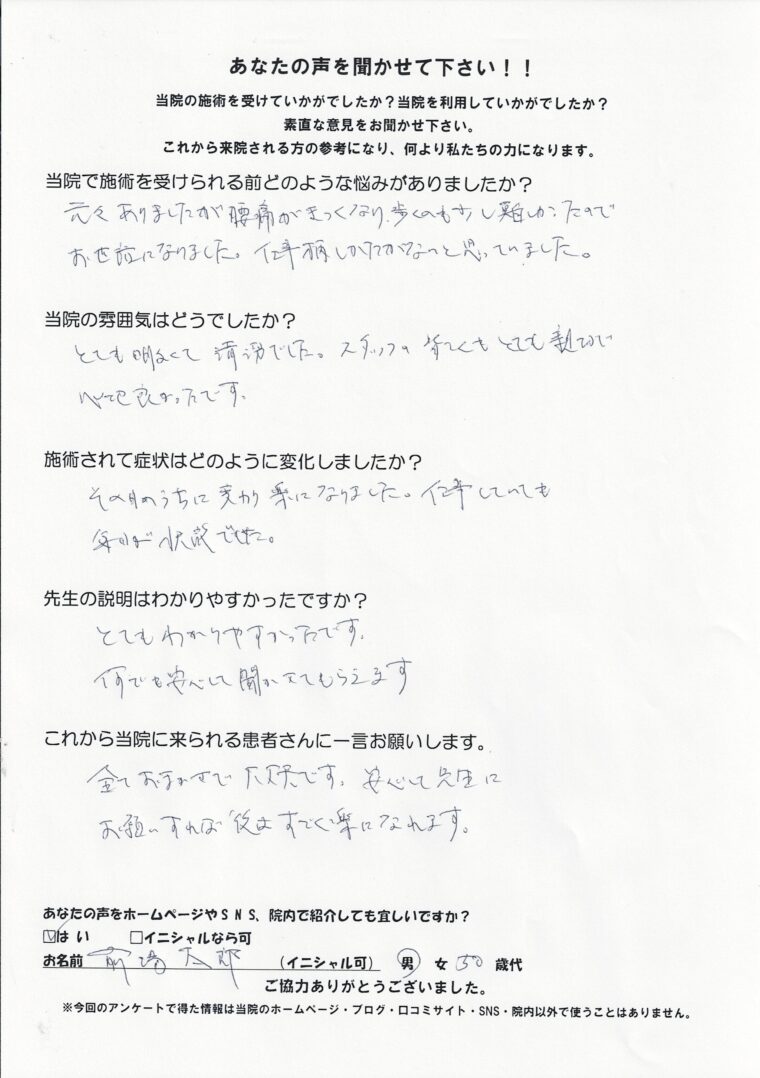 あなたの声を聞かせて下さい！！
当院の施術を受けていかがでしたか？当院を利用していかがでしたか？
素直な意見をお聞かせ下さい。
これから来院される方の参考になり、何より私たちの力になります。
当院で施術を受けられる前どのような悩みがありましたか？
元々ありましたが腰痛がきつくなり、歩くのも少し難しかったので
お世話になりました。仕事柄しかたがないと思っていました。
当院の雰囲気はどうでしたか？
とても明るくて清潔でした。スタッフの皆さんもとても親切で
心地良かったです。
施術されて症状はどのように変化しましたか？
その日のうちに変わり楽になりました。仕事していても
状態でした。
先生の説明はわかりやすかったですか？
とてもわかりやすかったです。
何でも安心して聞かせてもらえます
これから当院に来られる患者さんに一言お願いします。
全ておまかせで大丈夫です。安心して先生に
お願いすれば後はすごく楽になれます。
あなたの声をホームページやSNS、院内で紹介しても宜しいですか？
☑はい □イニシャルなら可
お名前 前場太郎 （イニシャル可） 男 女 50 歳代
ご協力ありがとうございました。
※今回のアンケートで得た情報は当院のホームページ・ブログ・口コミサイト・SNS・院内以外で使うことはありません。